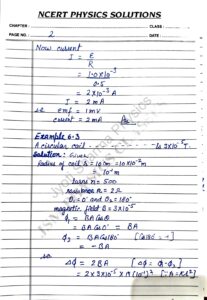 NCERT PHYSICS SOLUTIONS
CHAPTER :
CLASS :
PAGE NO. : 2
DATE :
Now current
I = E/R
= 1.0×10⁻³ / 0.5
= 2×10⁻³ A
I = 2 mA
emf = 1mV
current = 2mA
Example 6.3
A circular coil ... is 3×10⁻⁵ T.
Solution: Given
Radius of coil = 10cm = 10×10⁻² m
= 10⁻¹ m
turns n = 500
resistance R = 2Ω
θ₁ = 0° and θ₂ = 180°
magnetic field B = 3×10⁻⁵
ϕ₁ = BA Cosθ
= BA Cos0° = BA
ϕ₂ = BA Cos180° [Cos180° = -1]
= -BA
Δϕ = 2BA [Δϕ = ϕ₁-ϕ₂]
= 2×3×10⁻⁵×π(10⁻¹)²